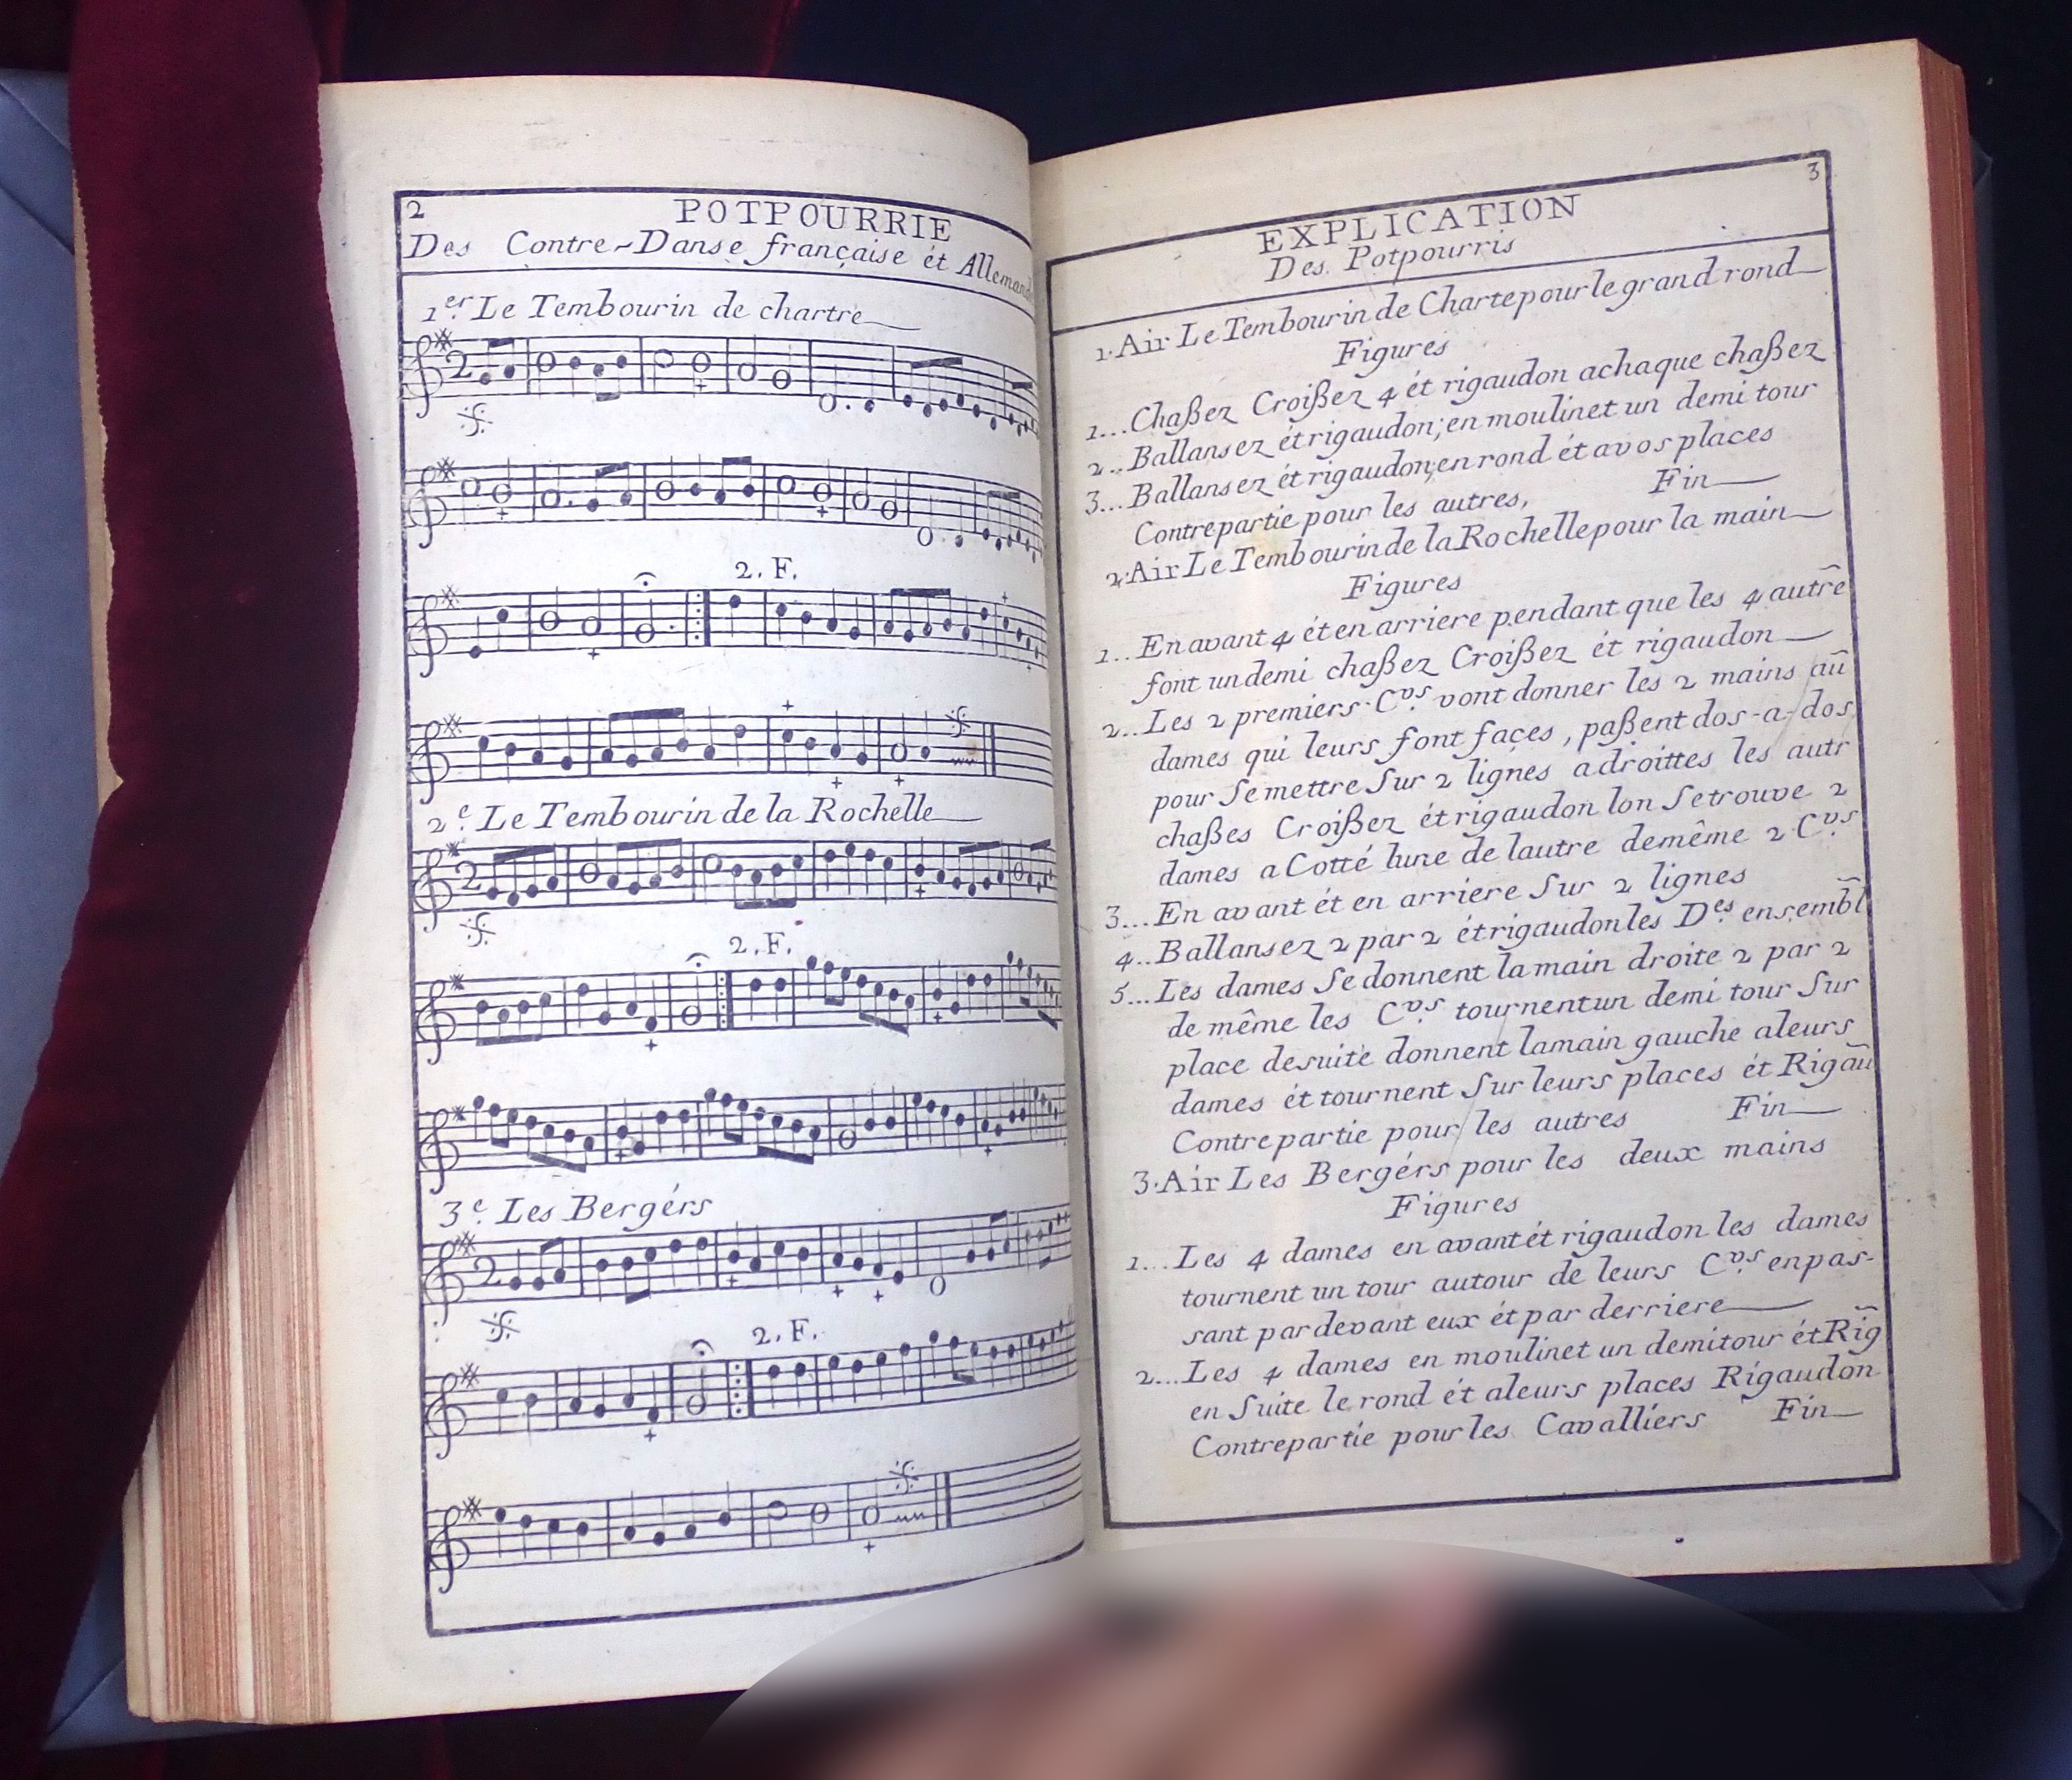 2
POTPOURRIE
Des Contre-Danse française ét Allemand
1er. Le Tembourin de chartre
2
2. F.
2e. Le Tembourin de la Rochelle
2
2. F.
3e. Les Bergérs
2
2. F.
3
EXPLICATION
Des Potpourris
1. Air Le Tembourin de Charte pour le grand rond
Figures
1... Chaßez Croißez 4 ét rigaudon a chaque chaßez
2... Ballansez ét rigaudon; en moulinet un demi tour
3... Ballansez ét rigaudon; en rond ét a vos places
Contrepartie pour les autres, Fin
2. Air Le Tembourin de la Rochelle pour la main
Figures
1... En avant 4 ét en arriere pendant que les 4 autre
font un demi chaßez Croißez ét rigaudon
2... Les 2 premiers Cvrs. vont donner les 2 mains aū
dames qui leurs font façes, paßent dos-a-dos
pour Se mettre Sur 2 lignes a droittes les autr
chaßes Croißez ét rigaudon lon Se trouve 2
dames a Cotté lune de lautre de même 2 Cvrs.
3... En avant ét en arriere Sur 2 lignes
4... Ballansez 2 par 2 ét rigaudon les Des. ensembl
5... Les dames Se donnent la main droite 2 par 2
de même les Cvrs. tournent un demi tour Sur
place de suite donnent la main gauche a leurs
dames ét tournent Sur leurs places ét Rigaū
Contrepartie pour les autres Fin
3. Air Les Bergérs pour les deux mains
Figures
1... Les 4 dames en avant ét rigaudon les dames
tournent un tour autour de leurs Cvrs. en pas-
sant par devant eux ét par derriere
2... Les 4 dames en moulinet un demi tour ét Rig
en Suite le rond ét a leurs places Rigaudon
Contrepartie pour les Cavalliérs Fin